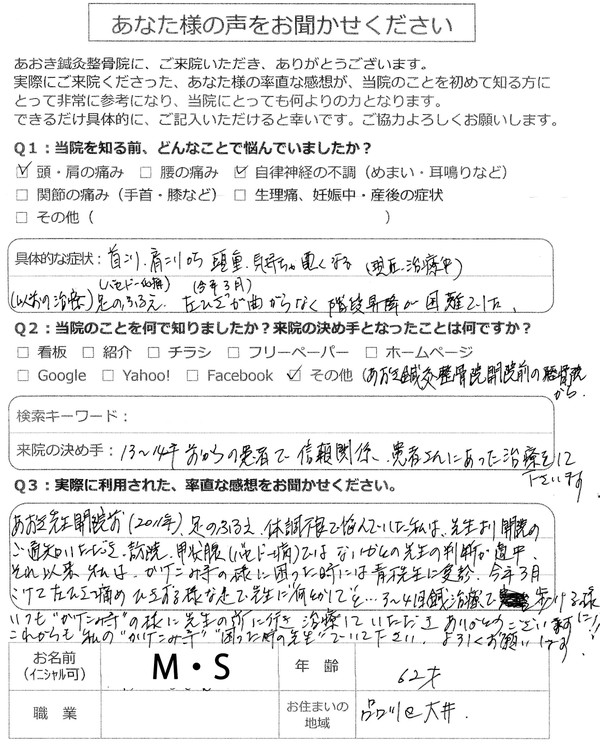 あなた様の声をお聞かせください
あおき鍼灸整骨院に、ご来院いただき、ありがとうございます。
実際にご来院くださった、あなた様の率直な感想が、当院のことを初めて知る方に
とって非常に参考になり、当院にとっても何よりの力となります。
できるだけ具体的に、ご記入いただけると幸いです。ご協力よろしくお願いします。
Q1：当院を知る前、どんなことで悩んでいましたか？
☑ 頭・肩の痛み □ 腰の痛み ☑ 自律神経の不調（めまい・耳鳴りなど）
□ 関節の痛み（手首・膝など） □ 生理痛、妊娠中・産後の症状
□ その他（ ）
具体的な症状：首こり、肩こりから頭重、気持ちも重くなる（現在治療中）
（バセドー病） （今年3月）
（以前の治療）足のふるえ、左ひざが曲がらなく階段昇降が困難でした。
Q2：当院のことを何で知りましたか？来院の決め手となったことは何ですか？
□ 看板 □ 紹介 □ チラシ □ フリーペーパー □ ホームページ
□ Google □ Yahoo! □ Facebook ☑ その他（あおき鍼灸整骨院開院前の整骨院
から
検索キーワード：
来院の決め手：13～14年前からの患者で信頼関係、患者さんにあった治療をして
下さいます
Q3：実際に利用された、率直な感想をお聞かせください。
あおき先生開院前（2011年）足のふるえ、体調不良で悩んでいた私は、先生より開院の
ご通知いただき、訪院。甲状腺（バセドー病）ではないかとの先生の判断が適中、
それ以来、私は、かけこみ寺の様に困った時には青木先生に受診。今年3月
こけて左ひざ痛め ひきずる様な足で先生に何とかしてと…3～4回鍼治療で歩ける様に!!
いつも"かけこみ寺"の様に先生の所に行き 治療していただき ありがとうございます
これからも"私の"かけこみ寺""困った時の先生"でいて下さい。よろしくお願いします
お名前
（イニシャル可）
M・S
年 齢
62才
職 業
お住まいの
地域
品川区大井